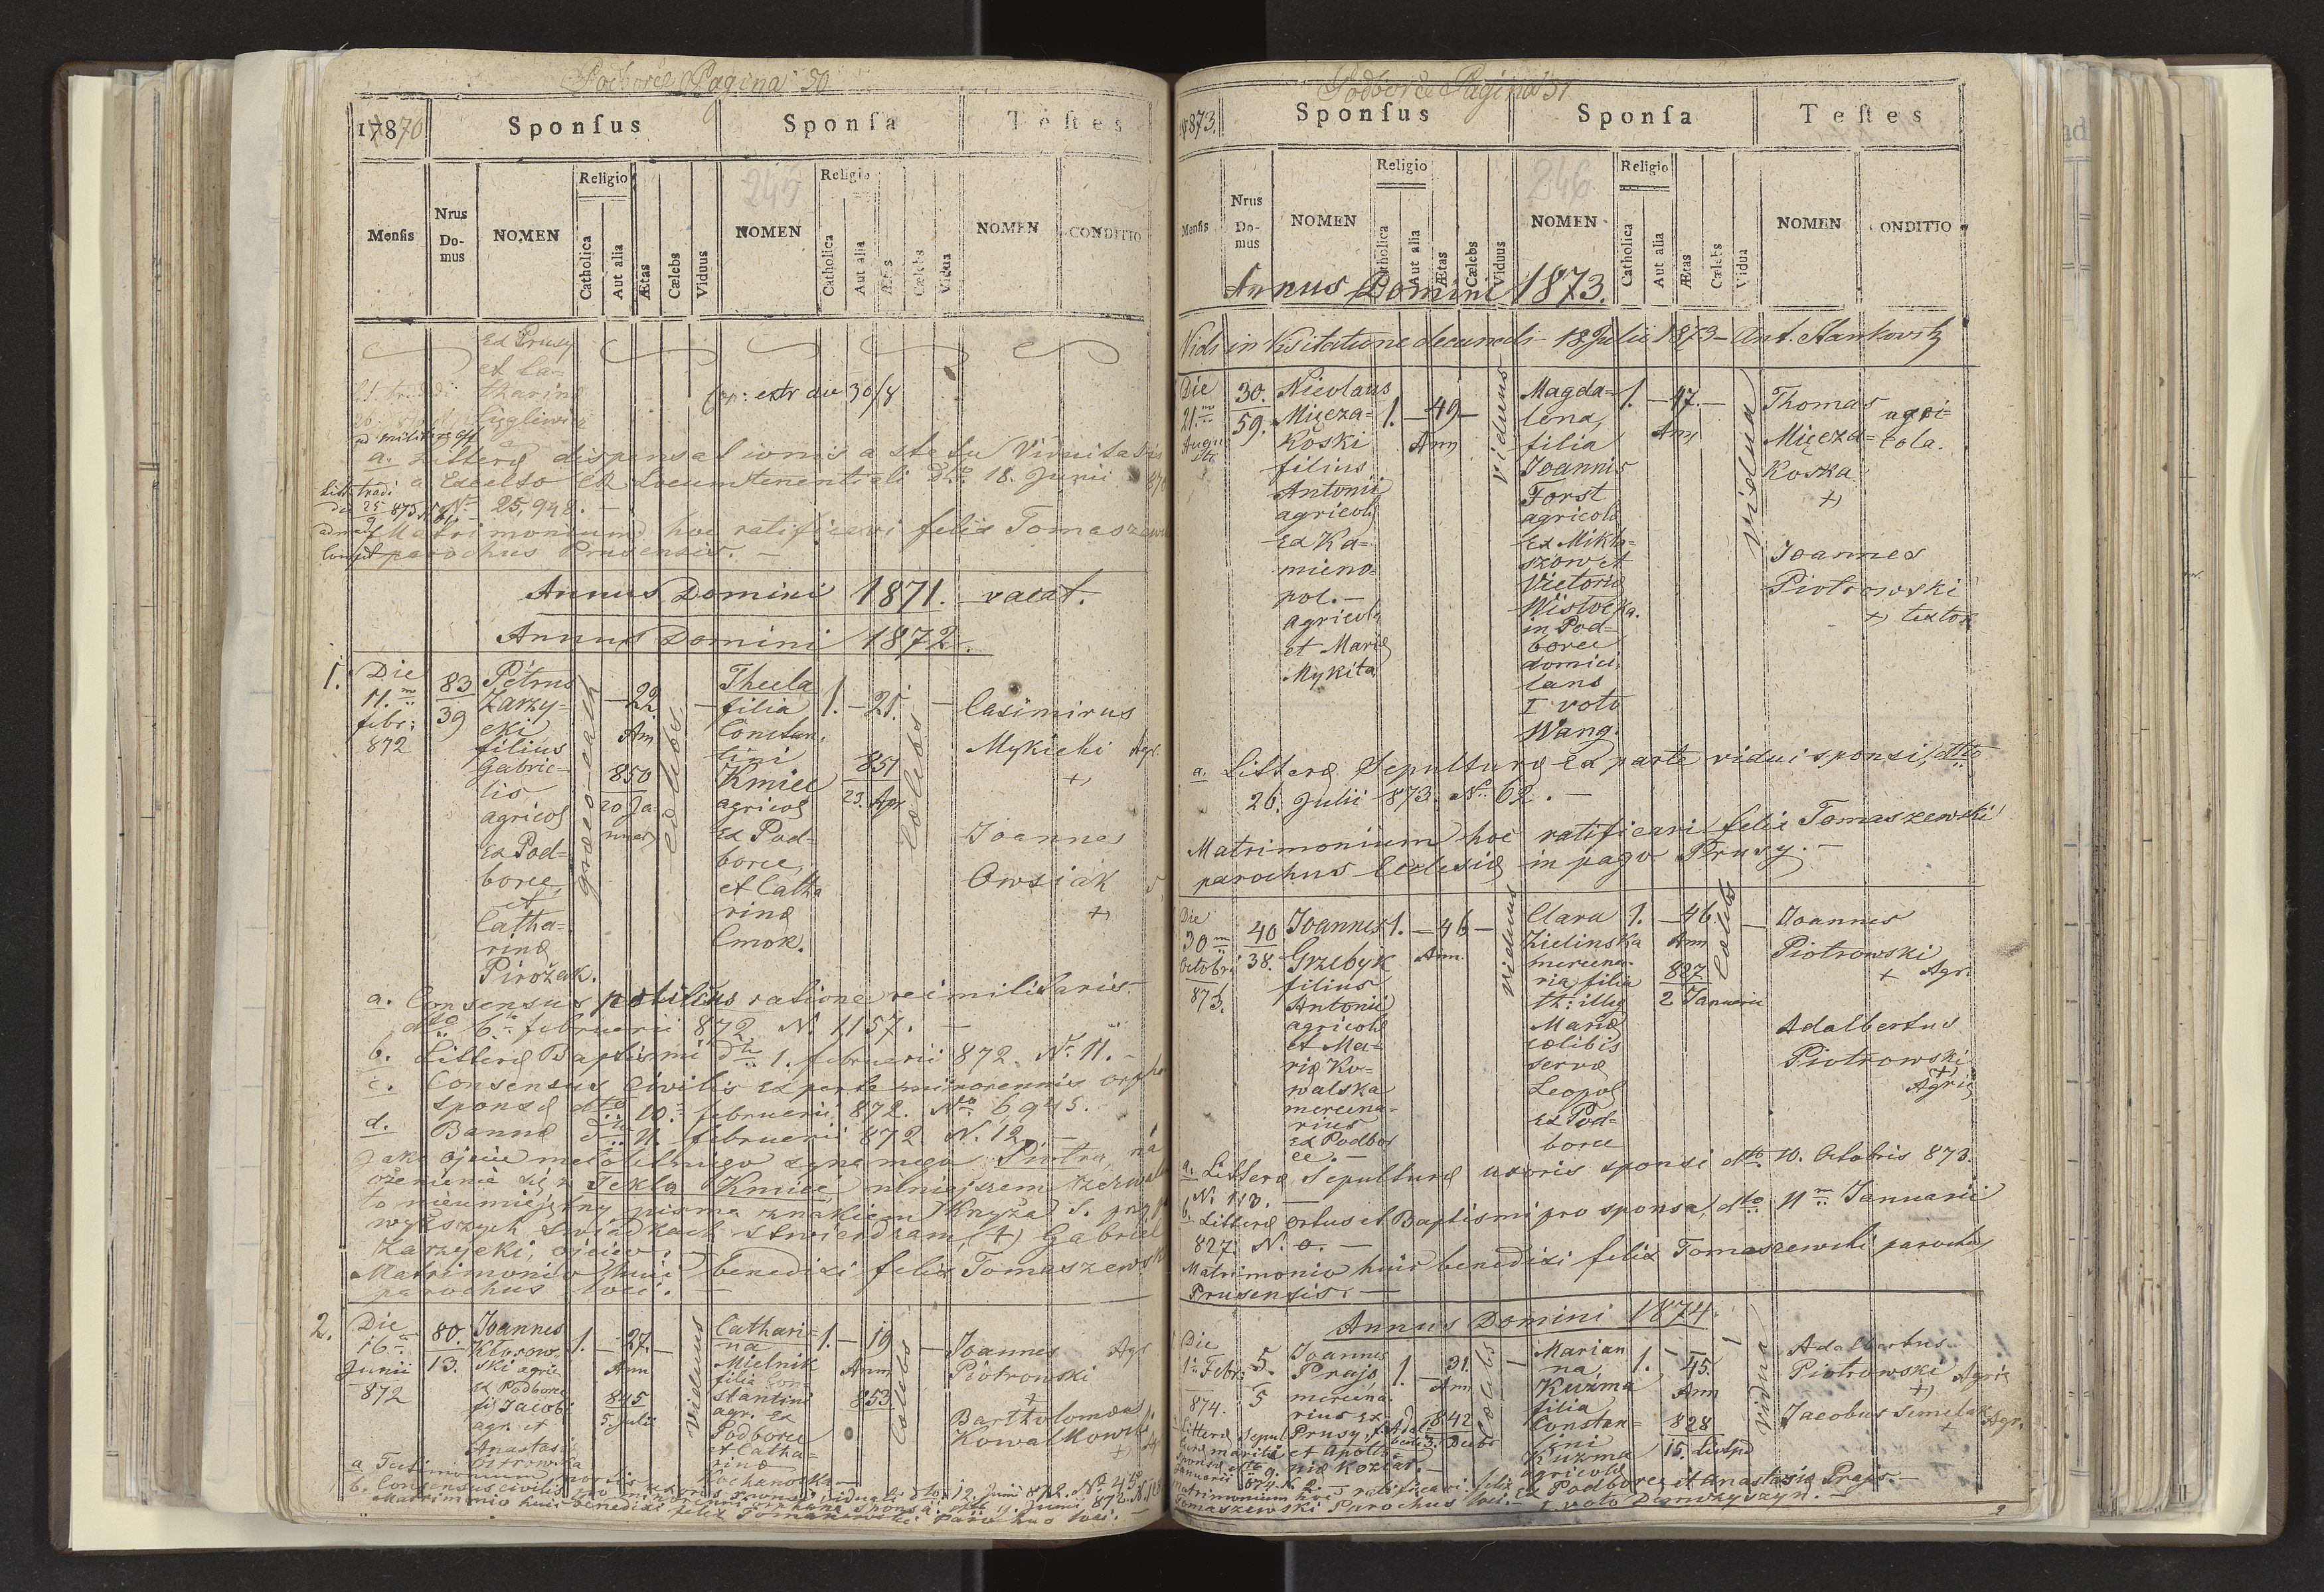 Podborce Pagina 50
17870
Sponſus
Sponſa
Teſtes
Menſis
Nrus Do-mus
NOMEN
Religio
Catholica
Aut alia
Ætas
Cælebs
Viduus
245
NOMEN
Religio
Catholica
Aut alia
Ætas
Cælebs
Vidua
NOMEN
CONDITIO
Ex Prusy
et Ca=
tharina
extr die 30/8
a. Litterę dispensationis a statu
a Excelso Locumtenentiali Dto 18. Junii
No 25,942. —
Matrimonium hoc ratificavi felix Tomaszewski
parochus Prusensis. —
Annus Domini 1871. vacat.
Annus Domini 1872.
1. Die
11.m
febr:
872
83
39
Petrus
Zarzy=
cki
filius
Gabrie=
lis
agricolę
Ex Pod=
borce,
et
Catha=
rinę
Pirożak.
graeco cath
22
Ann
850
20 Ja
nuar
coelebs
Thecla
filia
Constan=
tini
Kmieć
agricolę
Ex Pod=
borce,
et Catha
rinę
Cmok.
1. — 21. —
851
23. Apr
Coelebs
Casimirus
Mykicki Agr.
+)
Joannes
Owsiak
+)
a. Consensus politicus ratione rei militaris
dto 6ta februarii 872 N. 1157. —
b. Litterę Baptismi dto 1. februarii 872. N. 11. —
c. Consensus Civilis ex parte minorennis
sponsę dto 10. februarii 872. No 6945.
d. Banna dto 11. februarii 872 N. 12. —
Jako ojciec małoletniego syna mego Piotra, na
ożenienie się z Teklą Kmieć niniejszem zezwalam
to nieumiejętny pisma znakiem Krzyża S. przy
wyższych świadkach stwierdzam, (+) Gabriel
Zarzycki, ojciec.
Matrimonio huic benedixi felix Tomaszewski
parochus loci. —
2. Die
16.
Junii
872
80.
13.
Joannes
ski agric
Ex Podborce
fil Jacobi
agr. et
Anastasię
Ostrowska
1. — 27. —
Ann
845
5. Julii
Viduus
Cathari=
na
Mielnik
filia Con=
stantini
agr. Ex
Podborce
et Catha=
rinę
Kochanoska
1. — 19 —
Ann
853
Coelebs
Joannes Agr
Piotrowski
+
Bartholomaeus
Kowalkowski
+)
a Testimonium mortis uxoris sponsi viduati dto 12. Junii 872. No 45
b. Consensus civilis pro minorenni orphana sponsa dto 9. Junii 872.
Matrimonio huic benedixi felix Tomaszewski Parochus loci.
Podborce Pagina 51
1873.
Sponſus
Sponſa
Teſtes
Menſis
Nrus Do-mus
NOMEN
Religio
Catholica
Aut alia
Ætas
Cælebs
Viduus
246
NOMEN
Religio
Catholica
Aut alia
Ætas
Cælebs
Vidua
NOMEN
ONDITIO
Annus Domini 1873.
Vidi in Visitatione decanali 18 Julii 1873 — Ant. Stankovits
Die
21.m
Augu
sti
30.
59.
Nicolaus
Mięcza=
koski
filius
Antonii
agricolę
Ex Ka=
mieno=
pol. —
agricolę
et Marię
Mykita
1. — 49 —
Ann
viduus
Magda=
lena,
filia
Joannis
Forst
agricolę
Ex Mikła=
szow et
Victorię
Wistocka.
in Pod=
borce
domici
lans
I voto
Wang.
1. — 47. —
Ann
vidua
Thomas agri=
Mięcza= cola.
koska
+)
Joannes
Piotrowski
+) textor
a. Litterę Sepulturę Ex parte vidui sponsi, dto
26. Julii 873. No 62. —
Matrimonium hoc ratificavi felix Tomaszewski
parochus Ecclesię in pago Prusy. —
Die
30m
Octobri
873.
40
38.
Joannes
Grzebyk
filius
Antonii
agricolę
et Ma=
rię Ko=
walska
mercena=
rius
Ex Podbor
ce. —
1. — 46 —
Ann.
viduus
Clara
Zielinska
mercena=
ria, filia
th: illeg
Marię
cœlibis
servę
Leopol
Ex Pod=
borce
1. — 46. —
Ann
827
2 Januarii
Coelebs
Joannes
Piotrowski
+ Agr.
Adalbertus
Piotrowski
+)
Agric
a. Litterę Sepulturę uxoris sponsi dto 10. Octobris 873.
N. 113. —
b. Litterę ortus et Baptismi pro sponsa, dto 11m Januarii
827. N. o. —
Matrimonio huic benedixi felix Tomaszewski parochus
Prusensis. —
Annus Domini 1874.
Die
1. Febr:
874.
5.
5
Joannes
Prajs
mercena
rius Ex
Prusy, f. Adal
et Apollo=
nię Koziar. —
1. — 31. —
Ann
842
3. Decbr
coelebs
Marian
na
Kuźma
filia
Constan=
tini
Kuźma
agricolę
Ex Podborce, et Anastasię Prajs. —
I voto Diawczyszyn. —
1. — 45.
Ann
828
vidua
Adalbertus
Piotrowski Agric
+)
Jacobus Semelak Agr.
+
Litterę Sepul
turę mariti
sponsę dto 9.
Januarii
874. N. 2.
Matrimonium hoc ratificavi felix
Tomaszewski Parochus loci. —